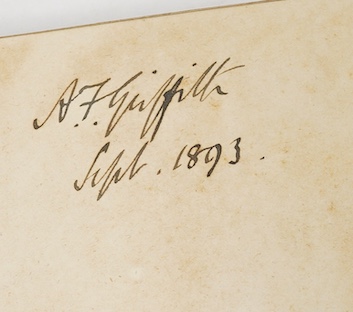 A.F. Griffith
Sept. 1893.